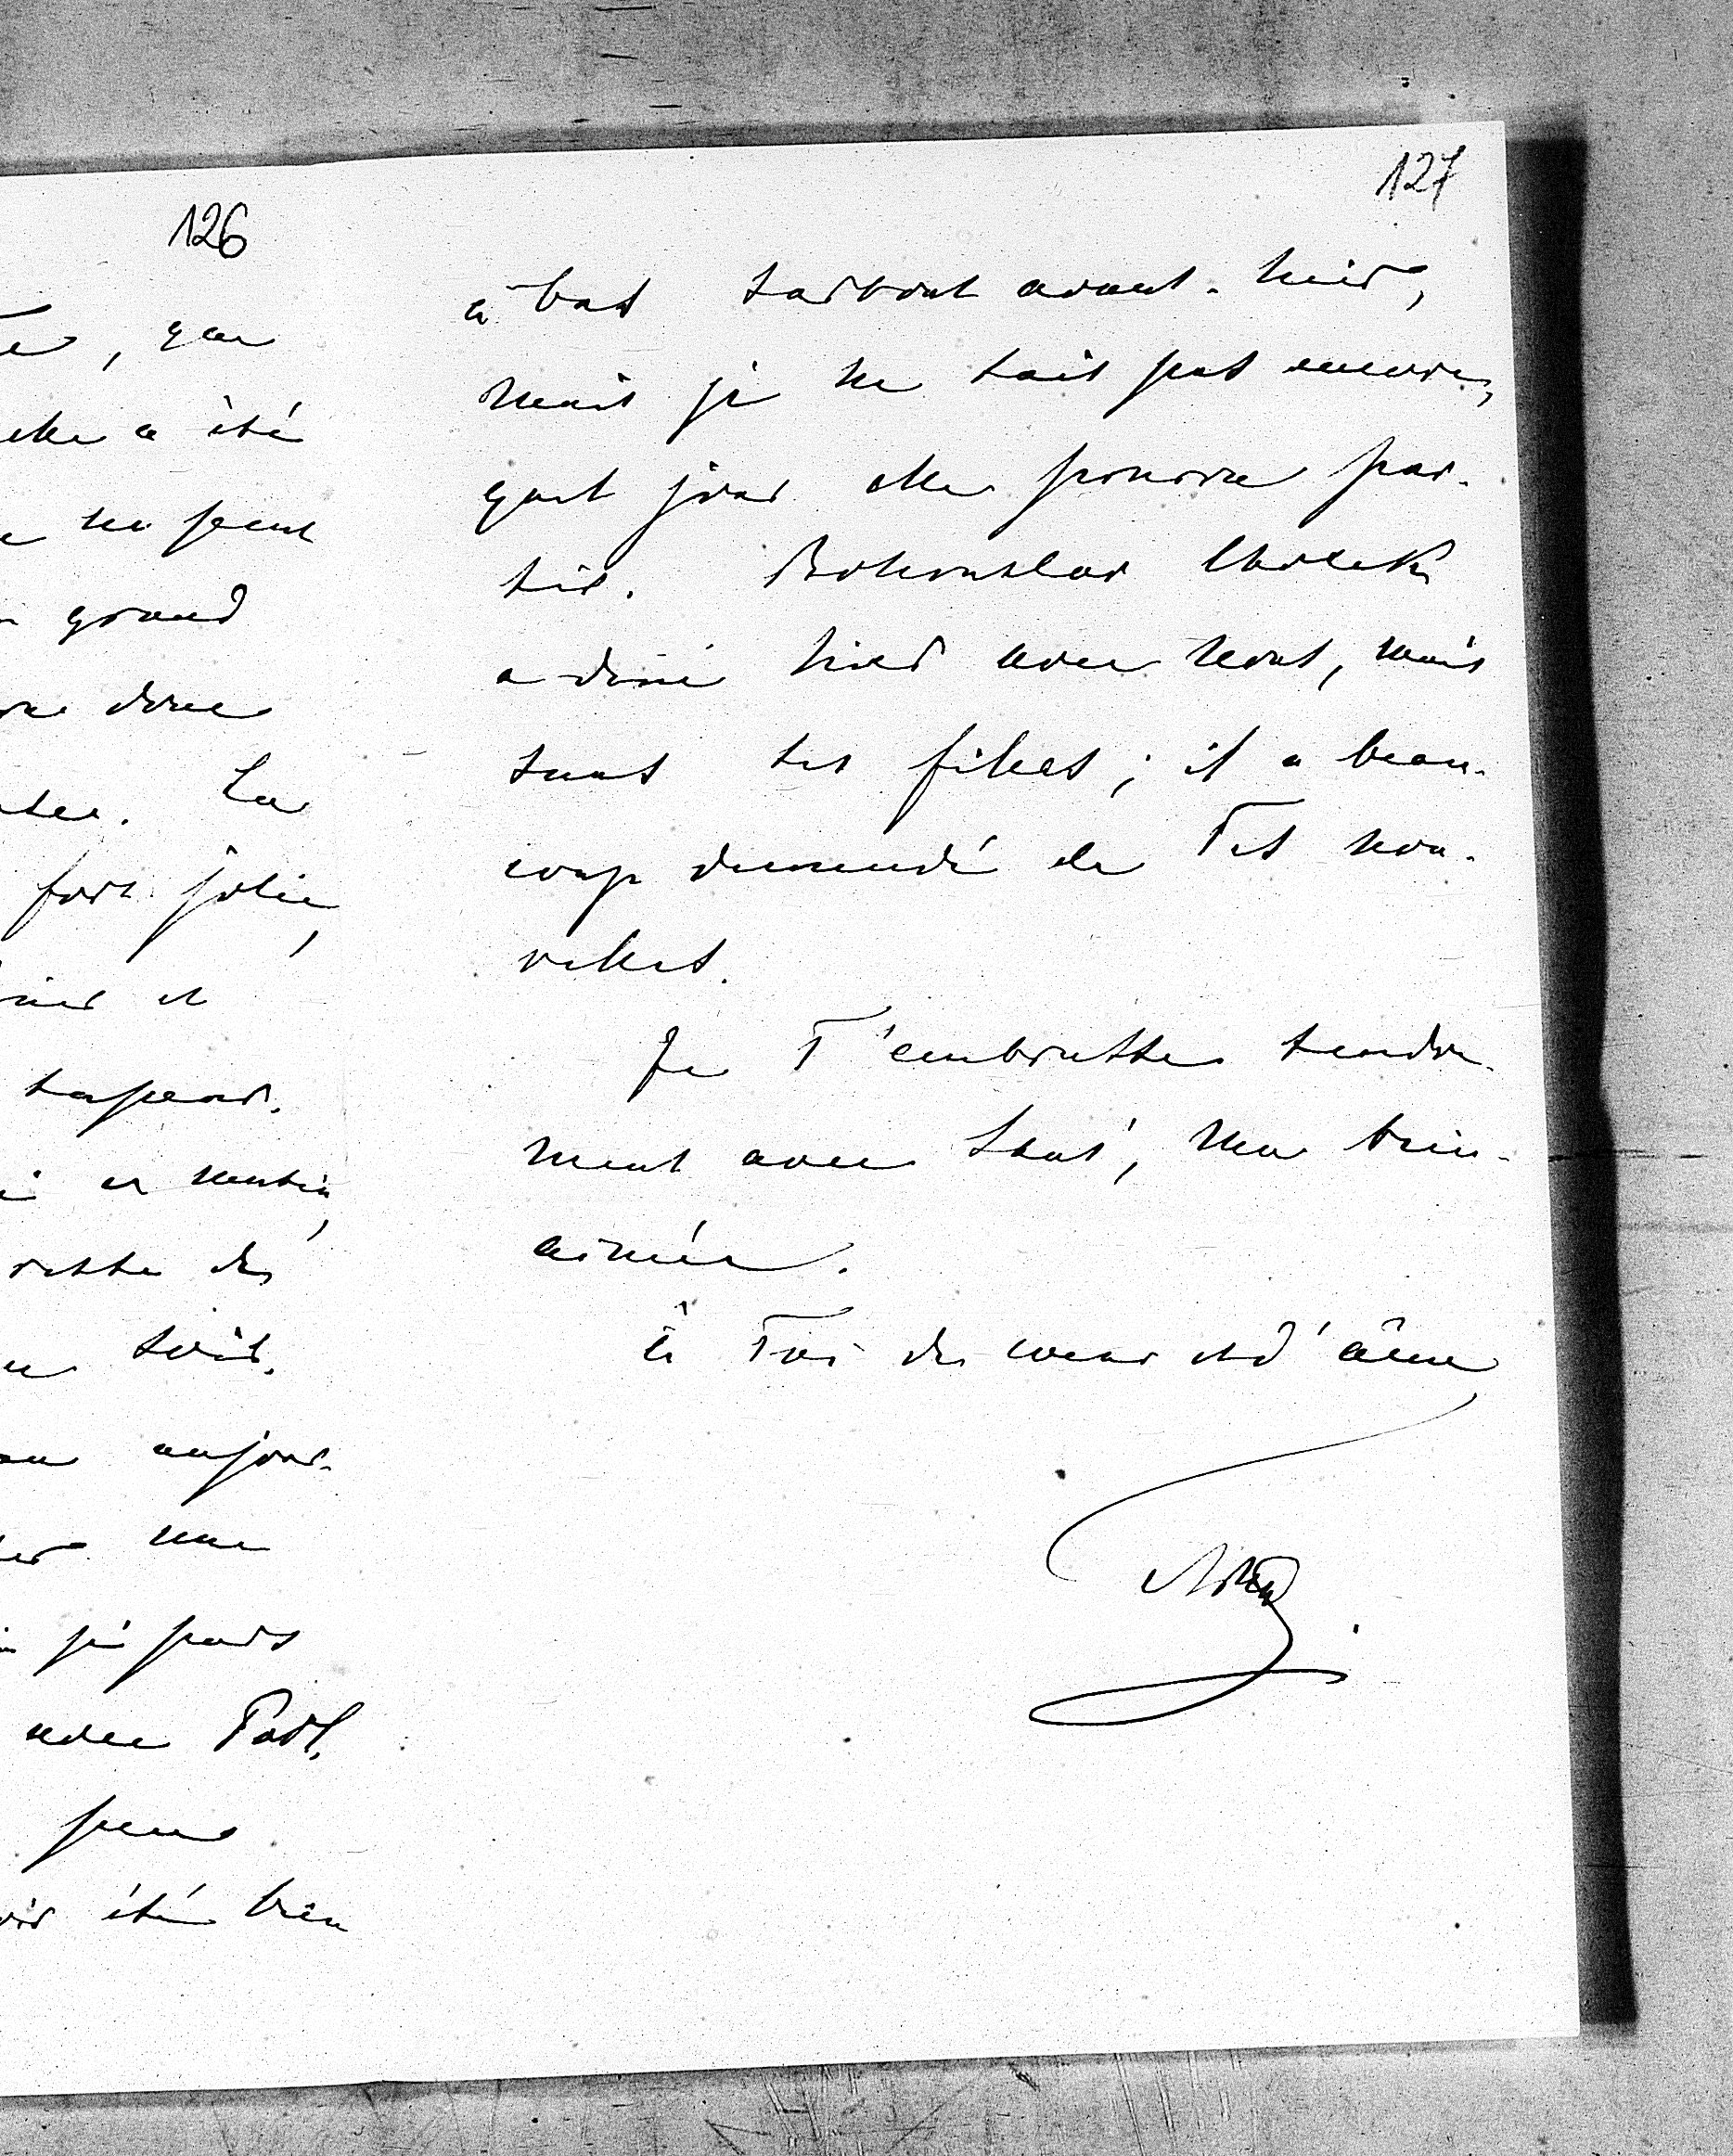 126
, que
elle a été
ne peut
grand
donc
La
fort jolie,
et
souper.
matin,
reste des
soir.
aujour-
une
je pars
avec Podl.
peur
été bien
127
à bas surtout avant-hier,
mais je ne sais pas encore,
quel jour elle pourra par-
tir. Bohouslav Chotek
a diné hier avec nous, mais
sans ses filles; il a beau-
coup demandé de Tes nou-
velles.
Je T'embrasse tendre-
ment avec tous, ma bien-
aimée.
à Toi de cœur et d'âme